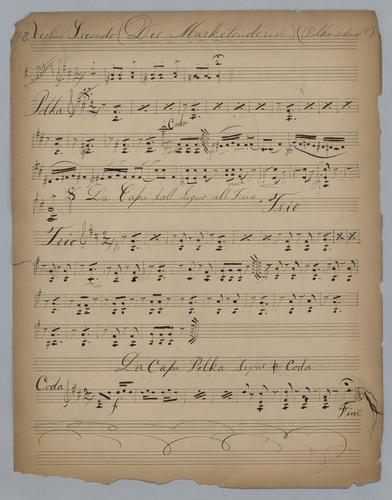 Violino Secondo (Die Marketenderin) (Polka schnell)
Polka
Coda
Da Capo dall Segno all Fine
Trio
Trio
Da Capo Polka Segno Coda
Coda
Fine